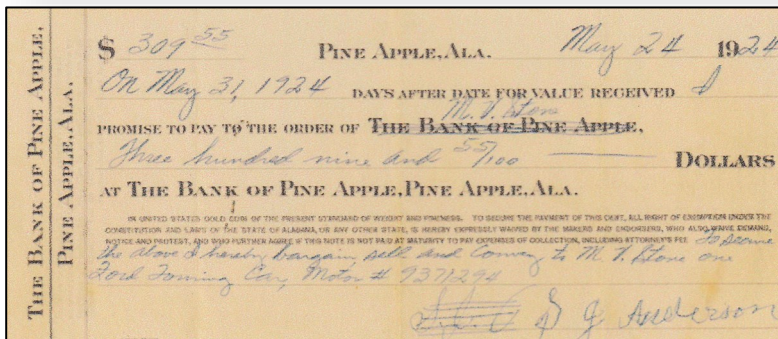 THE BANK OF PINE APPLE,
PINE APPLE, ALA.
$ 309 55 PINE APPLE, ALA. May 24 1924
On May 31, 1924 DAYS AFTER DATE FOR VALUE RECEIVED I
M. V. Stone
PROMISE TO PAY TO THE ORDER OF THE BANK OF PINE APPLE,
Three hundred nine and 55/100 DOLLARS
AT THE BANK OF PINE APPLE, PINE APPLE, ALA.
IN UNITED STATES GOLD COIN OF THE PRESENT STANDARD OF WEIGHT AND FINENESS. TO SECURE THE PAYMENT OF THIS DEBT, ALL RIGHT OF EXEMPTION UNDER THE
CONSTITUTION AND LAWS OF THE STATE OF ALABAMA, OR ANY OTHER STATE, IS HEREBY EXPRESSLY WAIVED BY THE MAKERS AND ENDORSERS, WHO ALSO WAIVE DEMAND,
NOTICE AND PROTEST, AND WHO FURTHER AGREE IF THIS NOTE IS NOT PAID AT MATURITY TO PAY EXPENSES OF COLLECTION, INCLUDING ATTORNEY'S FEE To secure
the above I hereby bargain, sell and convey to M V Stone one
Ford Touring Car, Motor # 9371294
S J Anderson